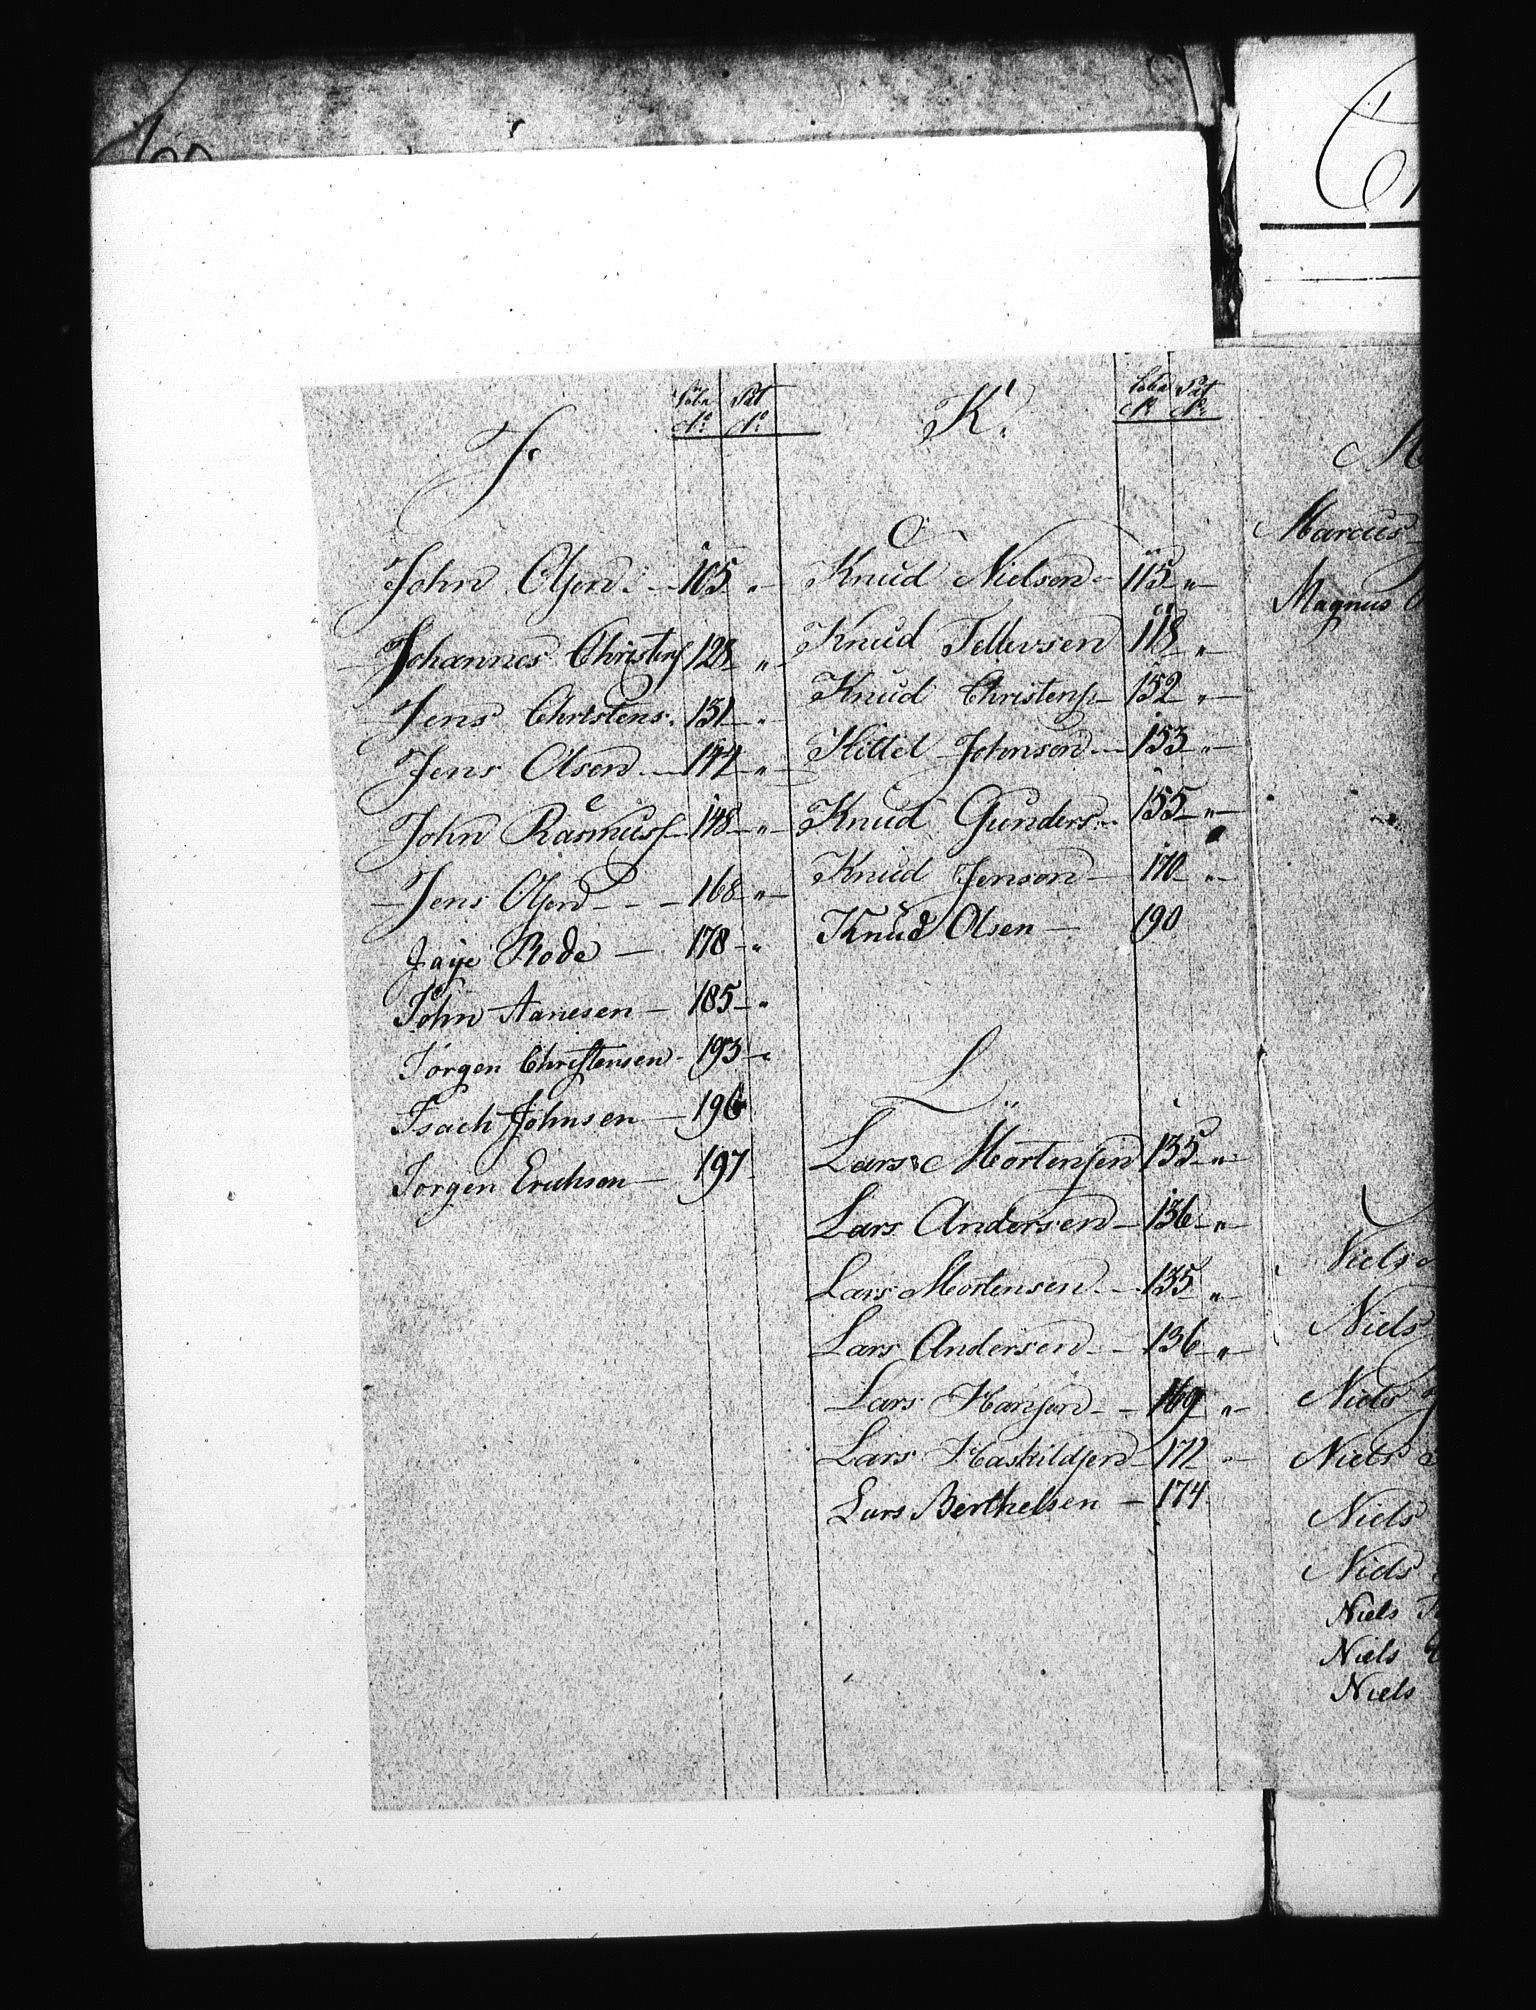 J.
Løbe Pat
No. No.
John Olsen. 105 "
Johannes Christens 128 "
Jens Christens. 131 "
Jens Olsen 144 "
John Rasmuss 148 "
Jens Olsen 168 "
Jaye Rode 178 "
John Aanesen 185 "
Jørgen Christensen 193
Isach Johnsen 196
Jørgen Erichson 197
K.
Løbe Pat
No. No.
Knud Nielsen 115 "
Knud Tellevsen 118 "
Knud Christens 152 "
Kittel Johnsen 153 "
Knud Gunders. 155 "
Knud Jensen 170 "
Knud Olsen 190
L
Lars Mortensen 135 "
Lars Andersen 136 "
Lars Mortensen 135 "
Lars Andersen 136 "
Lars Hansen 169 "
Lars Haskildsen 172 "
Lars Berthelsen 174
M
Marcus
Magnus
Niels
Niels
Niels
Niels
Niels
Niels
Niels
Niels
Niels